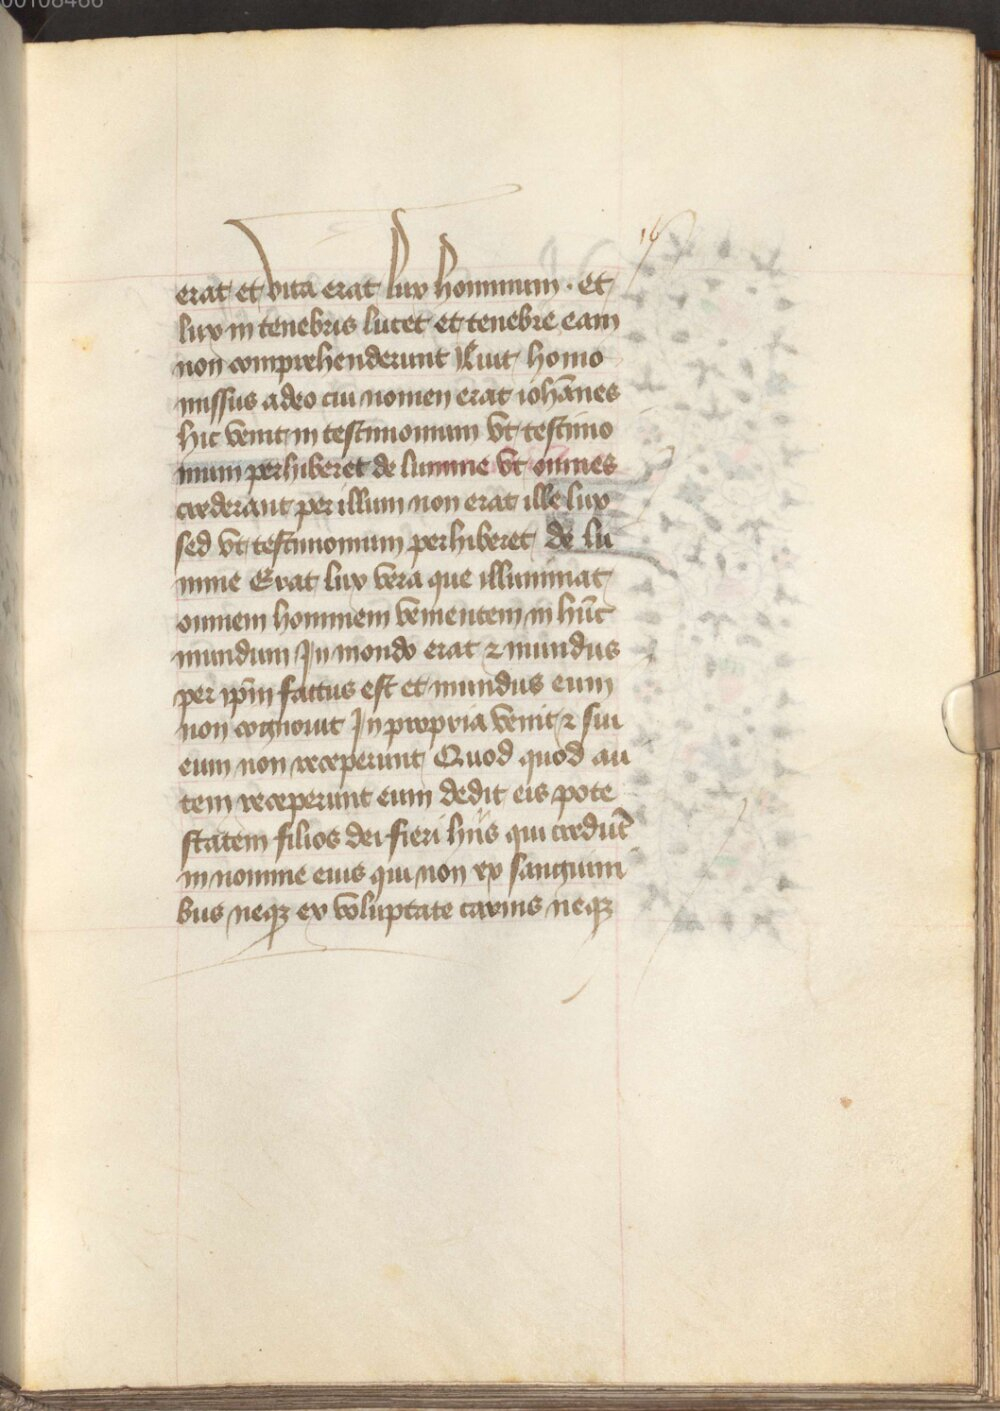 00108466
16
erat et vita erat lux hominum · Et
lux in tenebris lucet et tenebre eam
non comprehenderunt Fuit homo
missus adeo cui nomen erat iohānes
hic venit in testimonium vt testimo
nium perhiberet de lumine vt omnes
crederant per illum non erat ille lux
sed vt testimonium perhiberet de lu
mine Erat lux vera que illuminat
omnem hominem venientem in hūc
mundum In mondo erat ⁊ mundus
per ip̄m factus est et mundus eum
non cognouit In propria venit ⁊ sui
eum non receperunt Quod quod au
tem receperunt eum dedit eis pote
statem filios dei fieri hiis qui credūt
in nomine eius qui non ex sanguini
bus neqꝫ ex voluptate carnis neqꝫ